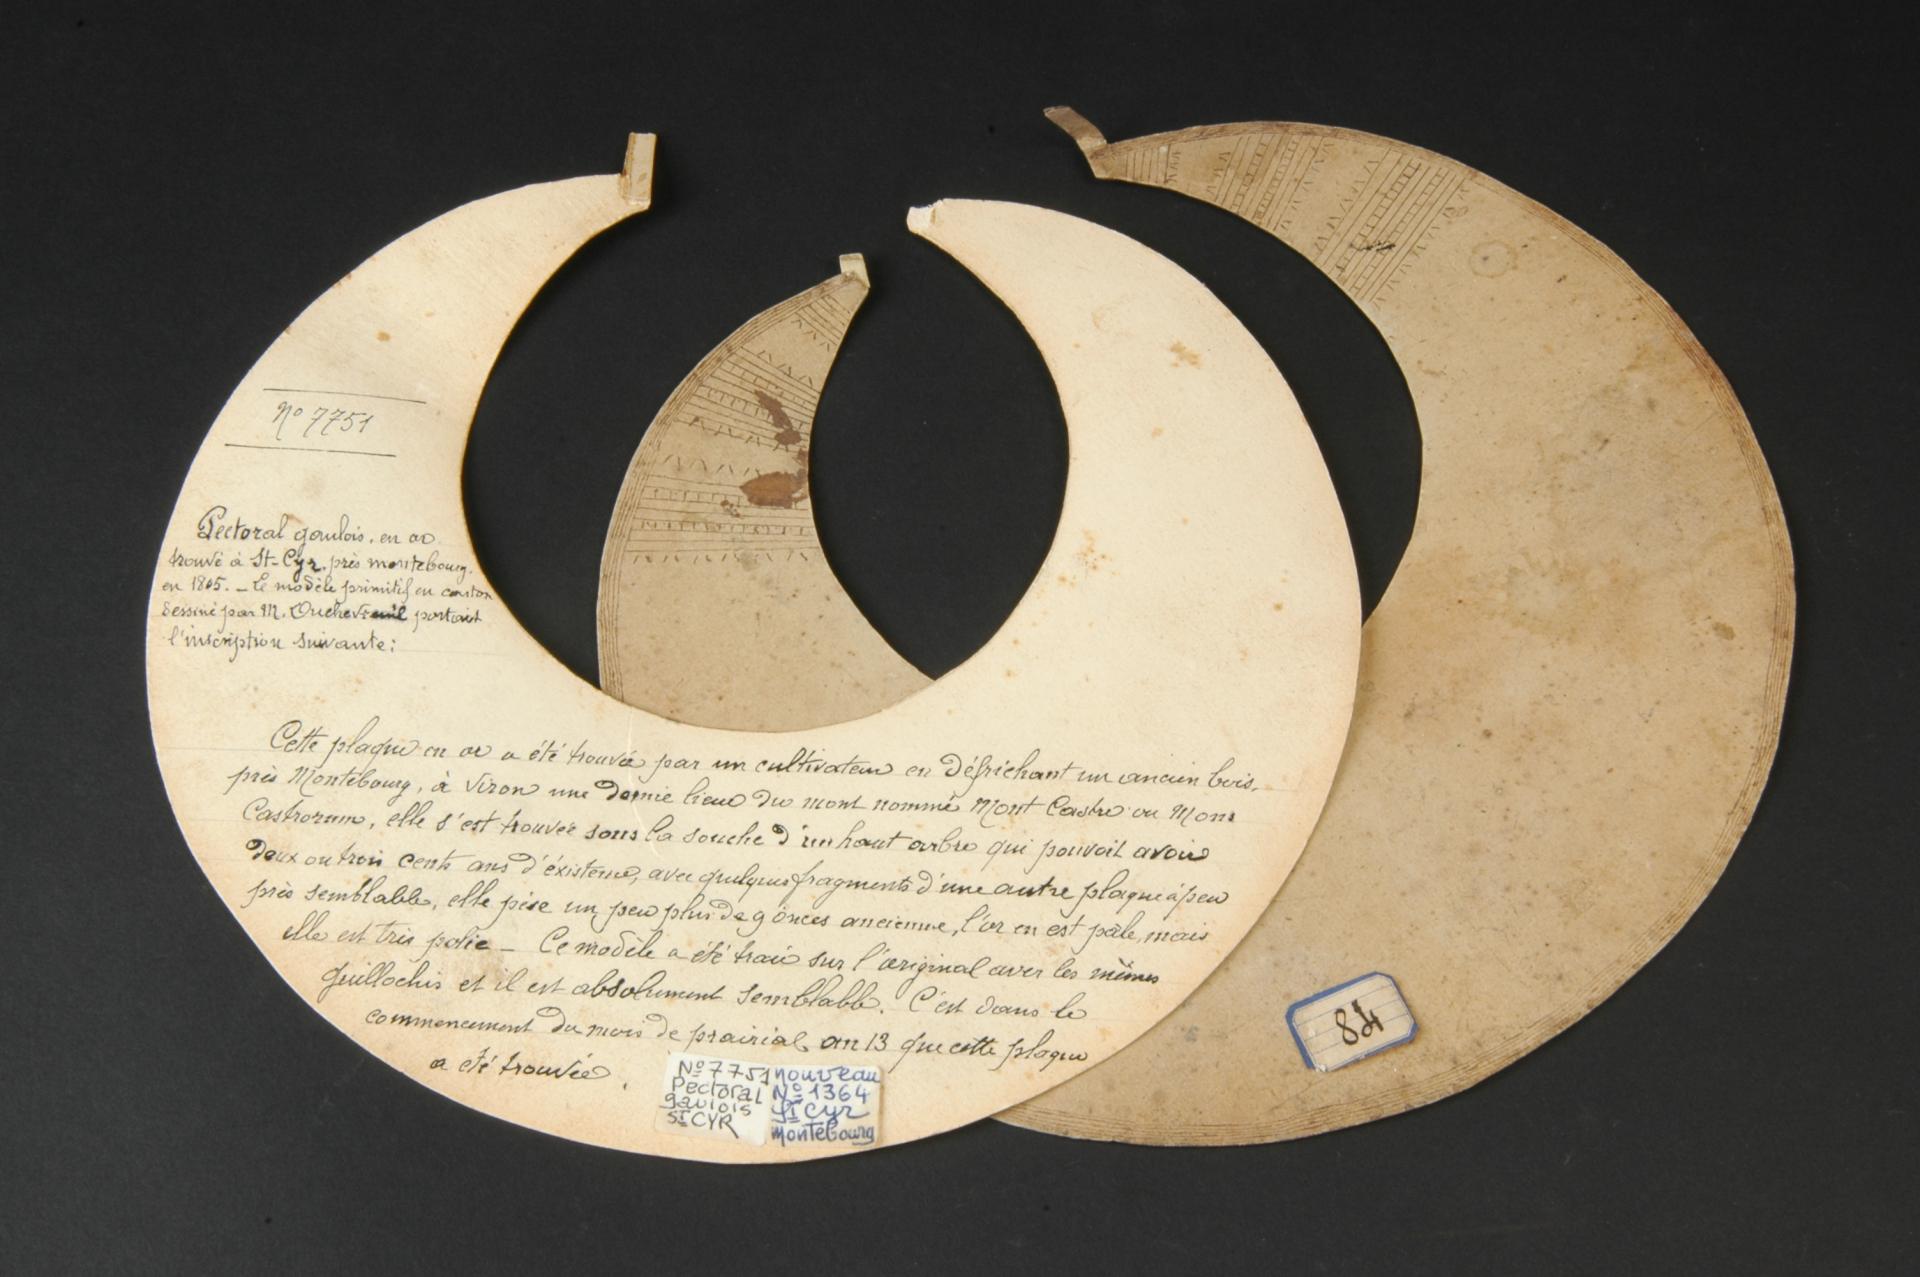 No 7751
Pectoral gaulois, en or
trouvé à St-Cyr, près montebourg.
en 1805. - Le modèle primitif en carton
dessiné par M. Ducheveuil portait
l'inscription suivante:
Cette plaque en or a été trouvée par un cultivateur en défrichant un ancien bois,
près Montébourg, à viron une demie lieue du mont nommé Mont Castre ou Mons
Castrorum, elle s'est trouvée sous la souche d'un haut arbre qui pouvoit avoir
deux ou trois cents ans d'éxistence, avec quelques fragments d'une autre plaque à peu
près semblable, elle pèse un peu plus de 9 onces ancienne, l'or en est pâle, mais
elle est très polie - Ce modèle a été tracé sur l'original avec les mêmes
guillochis et il est absolument semblable. C'est dans le
commencement du mois de prairial an 13 que cette plaque
a été trouvée.
No 7751
Pectoral
gaulois
St CYR
nouveau
No 1364
St Cyr
montebourg
84